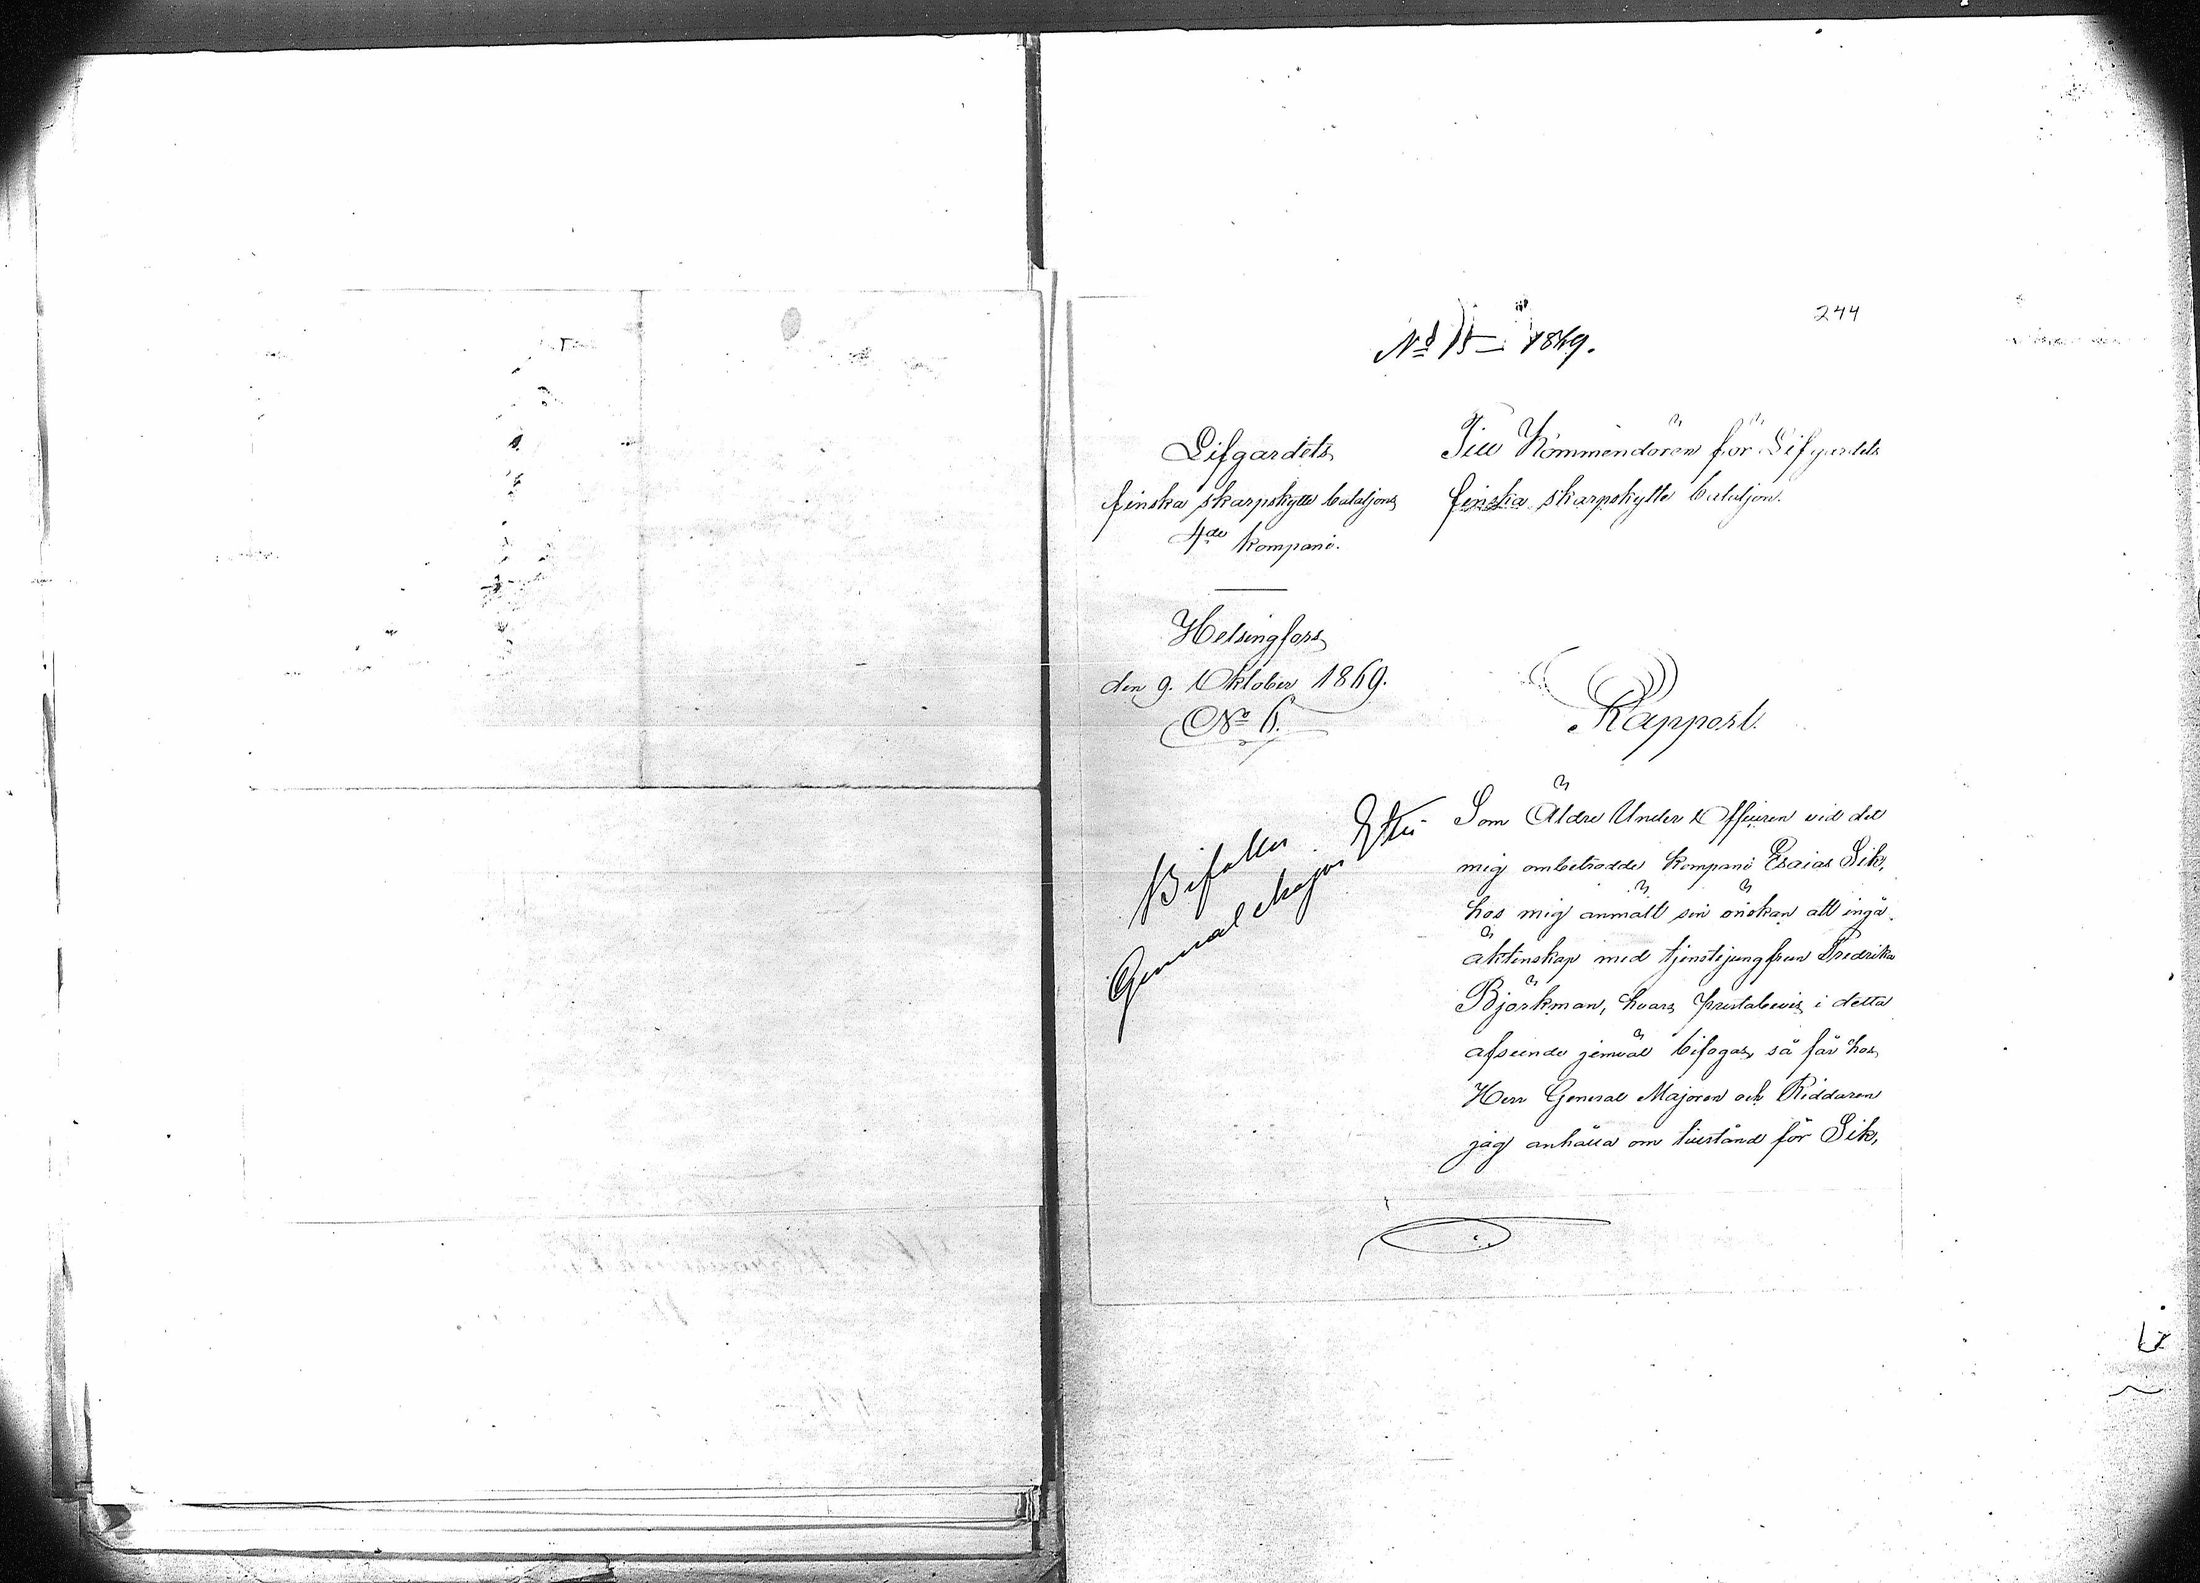 244
No 15 1869.
Lifgardets
finska skarpskytte bataljons
4de kompani.
Helsingfors
den 9. Oktober 1869.
No 6.
Till Kommendören för Lifgardets
finska skarpskytte bataljon.
Rapport.
Bifalles.
General Major
Som Äldre Under Officeren vid det
mig ombetrodde kompani Esaias Sik,
hos mig anmält sin önskan att ingå
äktenskap med tjenstejungfrun Fredrika
Björkman, hvars prestabevis i detta
afseende jemväl bifogas, så får hos
Herr General Majoren och Riddaren
jag anhålla om tillstånd för Sik,